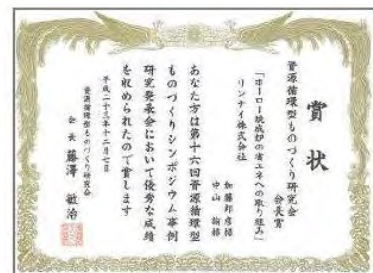 賞状
資源循環型ものづくり研究会
会長賞
「ホーロー焼成炉の省エネへの取り組み」
リンナイ株式会社
加藤邦彦様
中山 様
あなた方は第十六回資源循環型
ものづくりシンポジウム事例
研究発表会において優秀な成績
を収められたので賞します
平成二十三年十二月七日
資源循環型ものづくり研究会
会長 藤澤 敏治